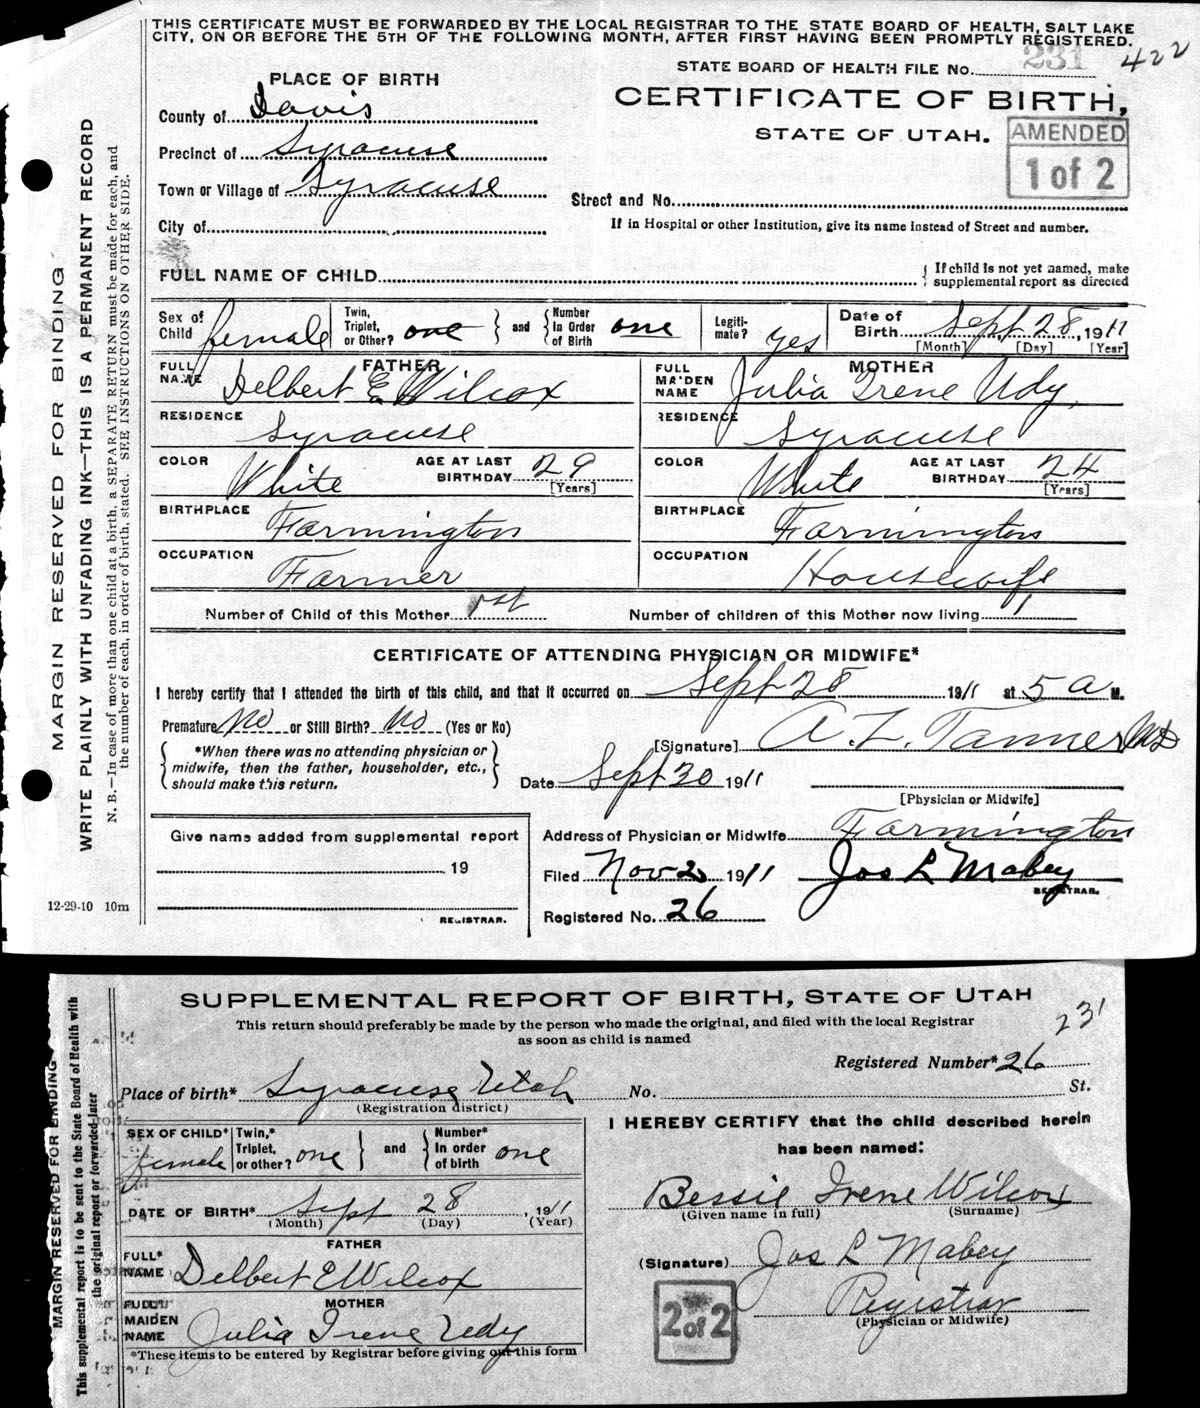 THIS CERTIFICATE MUST BE FORWARDED BY THE LOCAL REGISTRAR TO THE STATE BOARD OF HEALTH, SALT LAKE
CITY, ON OR BEFORE THE 5TH OF THE FOLLOWING MONTH, AFTER FIRST HAVING BEEN PROMPTLY REGISTERED.
STATE BOARD OF HEALTH FILE No. 231 422
PLACE OF BIRTH
CERTIFICATE OF BIRTH,
STATE OF UTAH.
AMENDED
1 of 2
County of Davis
Precinct of Syracuse
Town or Village of Syracuse
City of
Street and No.
If in Hospital or other Institution, give its name instead of Street and number.
FULL NAME OF CHILD { If child is not yet named, make
supplemental report as directed
Sex of Child female
Twin, Triplet, or Other? one } and { Number In Order of Birth one
Legiti-mate? yes
Date of Birth Sept, 28, 1911
[Month] [Day] [Year]
FATHER
FULL NAME Delbert E Wilcox
RESIDENCE Syracuse
COLOR White AGE AT LAST BIRTHDAY 29 [Years]
BIRTHPLACE Farmington
OCCUPATION Farmer
MOTHER
FULL MAIDEN NAME Julia Irene Udy,
RESIDENCE Syracuse
COLOR White AGE AT LAST BIRTHDAY 24 [Years]
BIRTHPLACE Farmington
OCCUPATION Housewife
Number of Child of this Mother 1st Number of children of this Mother now living 1
CERTIFICATE OF ATTENDING PHYSICIAN OR MIDWIFE*
I hereby certify that I attended the birth of this child, and that it occurred on Sept 28 1911 at 5 a M.
Premature No or Still Birth? No (Yes or No)
{ *When there was no attending physician or
midwife, then the father, householder, etc.,
should make this return. }
[Signature] A. Z. Tanner MD
Date Sept 30 1911
[Physician or Midwife]
Give name added from supplemental report
19
REGISTRAR.
Address of Physician or Midwife Farmington
Filed Nov 2 1911 Jos L Mabey
REGISTRAR.
Registered No. 26
MARGIN RESERVED FOR BINDING
WRITE PLAINLY WITH UNFADING INK—THIS IS A PERMANENT RECORD
N. B.—In case of more than one child at a birth, a SEPARATE RETURN must be made for each, and
the number of each, in order of birth, stated. SEE INSTRUCTIONS ON OTHER SIDE.
12-29-10 10m
SUPPLEMENTAL REPORT OF BIRTH, STATE OF UTAH
This return should preferably be made by the person who made the original, and filed with the local Registrar
as soon as child is named
231
Registered Number* 26
Place of birth* Syracuse Utah No. St.
(Registration district)
SEX OF CHILD* female
Twin,* Triplet, or other? one } and { Number* In order of birth one
DATE OF BIRTH* Sept 28, 1911
(Month) (Day) (Year)
FATHER
FULL* NAME Delbert E Wilcox
MOTHER
FULL MAIDEN NAME Julia Irene Udy
*These items to be entered by Registrar before giving out this form
I HEREBY CERTIFY that the child described herein
has been named:
Bessie Irene Wilcox
(Given name in full) (Surname)
(Signature) Jos L Mabey
Registrar
(Physician or Midwife)
2 of 2
MARGIN RESERVED FOR BINDING
This supplemental report is to be sent to the State Board of Health with
the original report or forwarded later